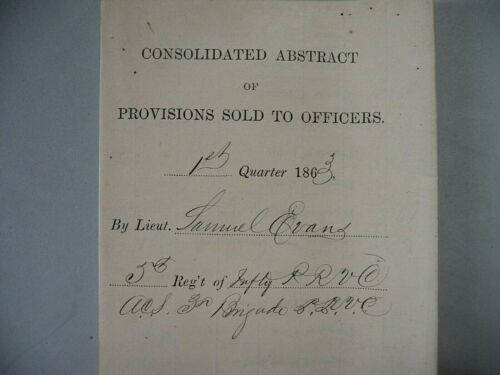 CONSOLIDATED ABSTRACT
OF
PROVISIONS SOLD TO OFFICERS.
1st Quarter 1863,
By Lieut. Samuel Evans
5th Reg't of Infty P R V C
A.C.S. 3rd Brigade P.R.V.C